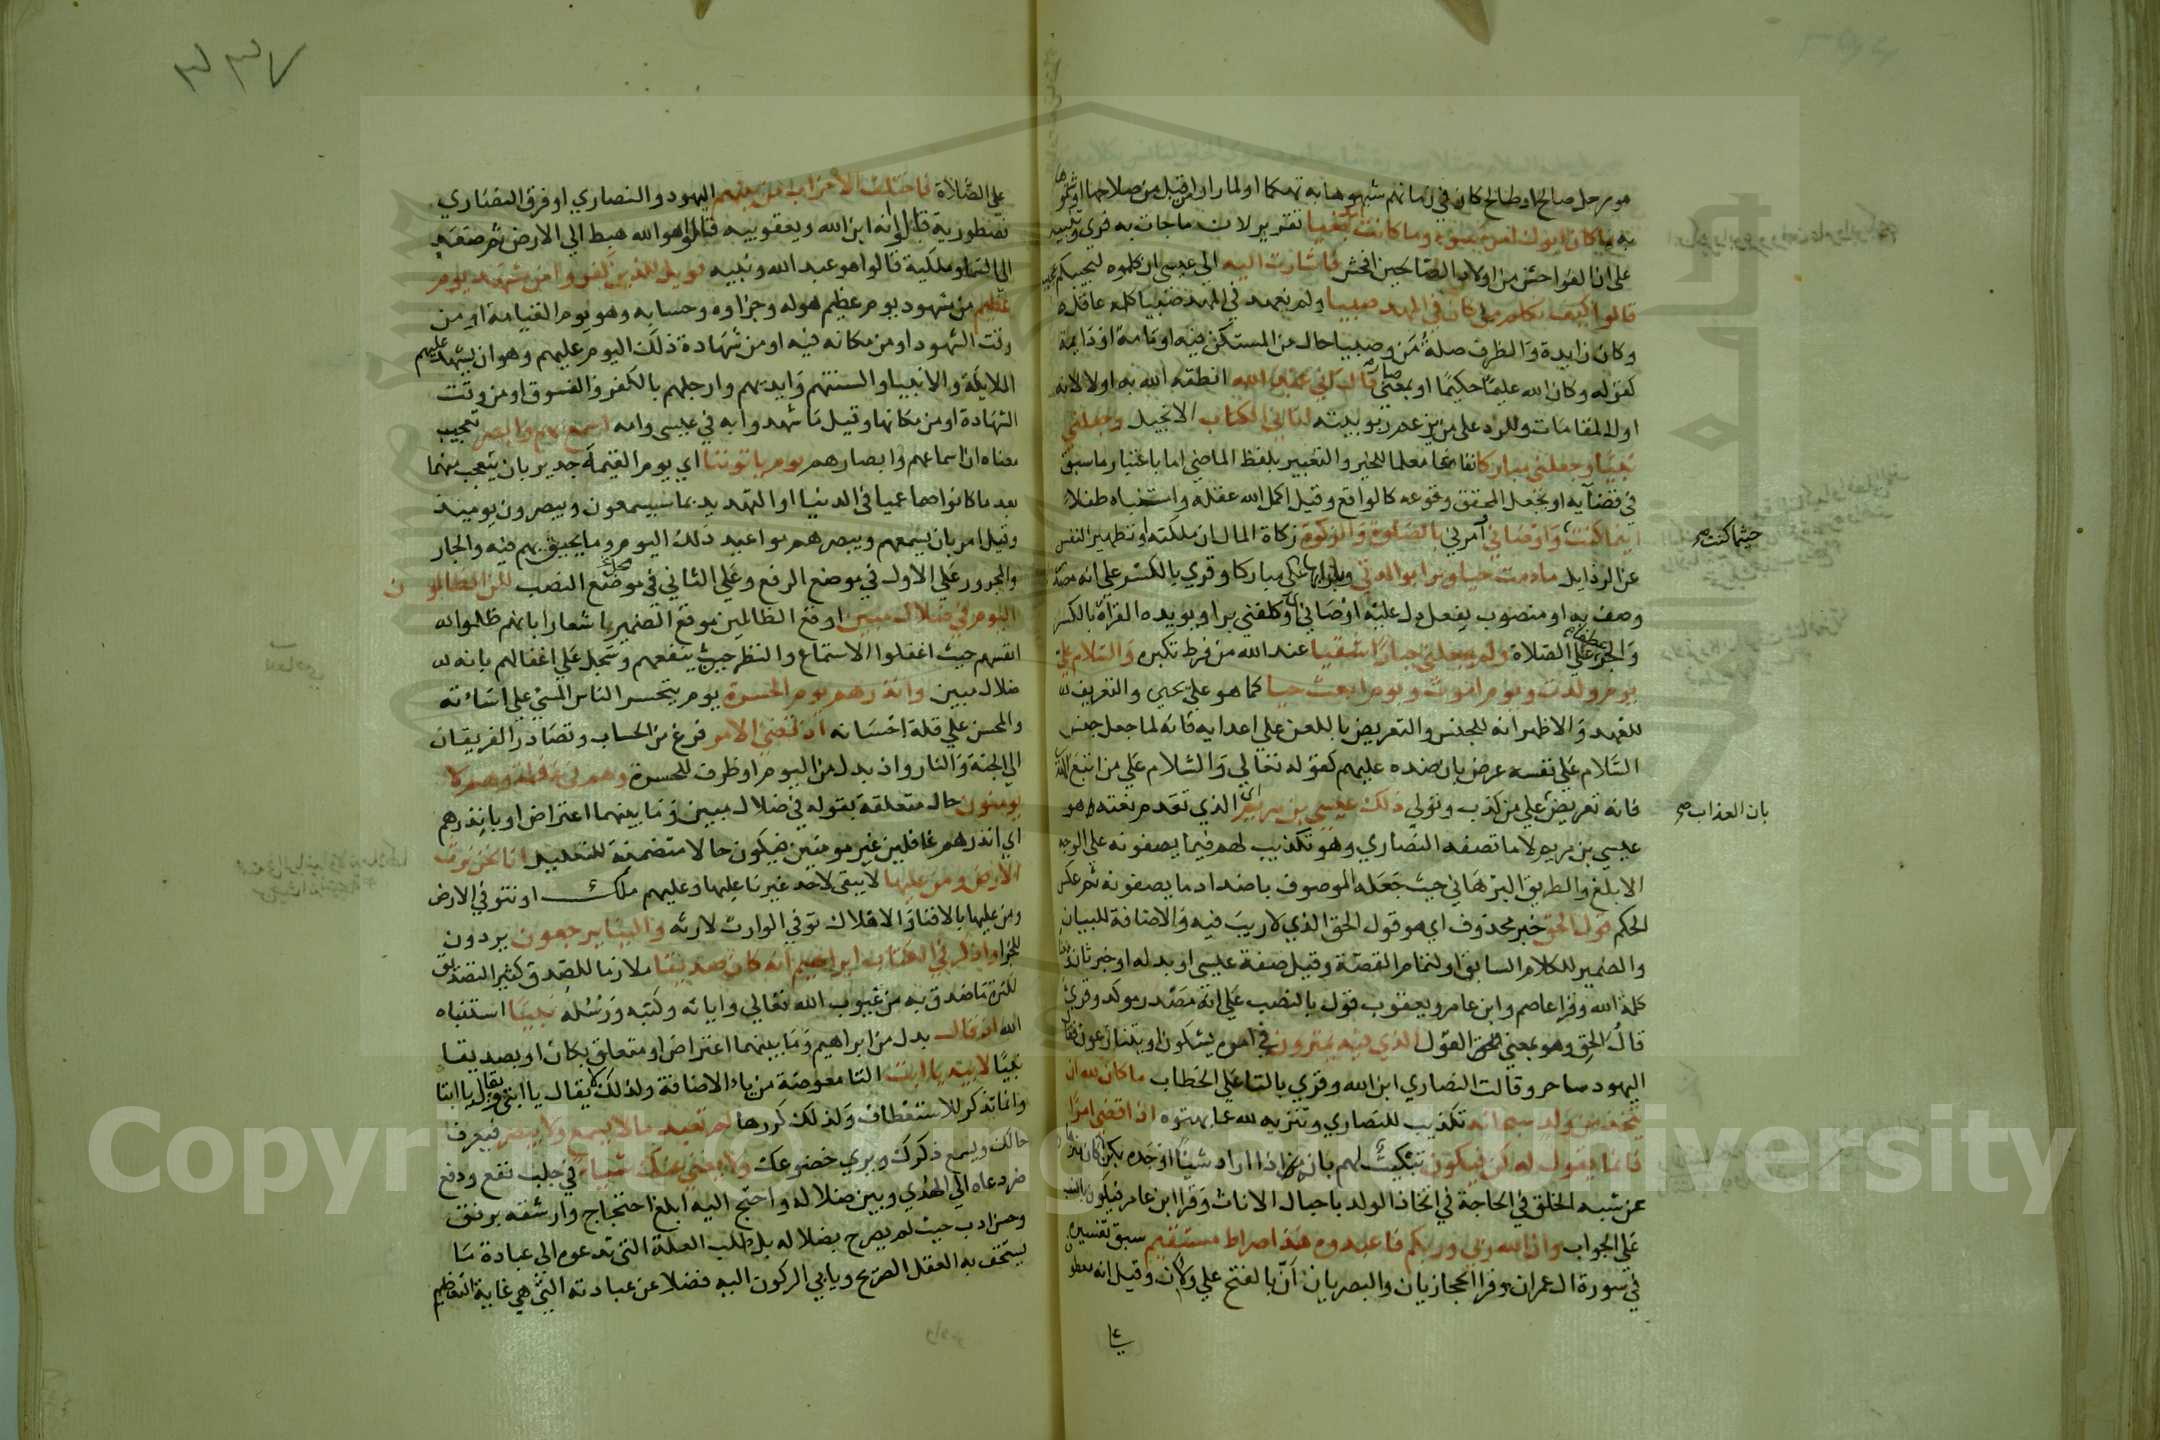 هو رجل صالح او طالح كان في زمانهم شبهوها به تهكما او لما راوا قبل من صلاحها او شتموها
به ما كان ابوك امرء سوء وما كانت امك بغيا تقرير لان ما جات به فري وتنبيه
على ان الفواحش من اولاد الصالحين افحش فاشارت اليه الى عيسى ان كلموه ليجيبكم
قالوا كيف نكلم من كان في المهد صبيا ولم نعهد في المهد صبيا كلمه عاقل
وكان زايدة والظرف صلة من وصبيا حال من المستكن فيه او تامة او دايمة
كقوله وكان الله عليما حكيما او بمعنى صار قال اني عبد الله انطقه الله به اولا لانه
اول المقامات وللرد على من يزعم ربوبيته اتاني الكتاب الانجيل وجعلني
نبيا وجعلني مباركا نفاعا معلما للخير والتعبير بلفظ الماضي اما باعتبار ما سبق
في قضآيه او بجعل المحقق وقوعه كالواقع وقيل اكمل الله عقله واستنباه طفلا
اينما كنت واوصاني امرني بالصلوة والزكوة زكاة المال ان ملكته او تطهير النفس
عن الرذايل ما دمت حيا وبرا بوالدتي وبارا بها عطف على مباركا وقري بالكسر على انه مصدر
وصف به او منصوب بفعل دل عليه اوصاني اي وكلفني برا ويؤيده القرأة بالكسر
والجر عطفا على الصلاة ولم يجعلني جبارا شقيا عند الله من فرط تكبره والسلام علي
يوم ولدت ويوم اموت ويوم ابعث حيا كما هو على يحيى والتعريف
للعهد والاظهر انه للجنس والتعريض باللعن على اعدايه فانه لما جعل جنس
السلام على نفسه عرض بان ضده عليهم كقوله تعالى والسلام على من اتبع الهدى
فانه تعريض على من كذب وتولى ذلك عيسى بن مريم اي الذي تقدم نعته هو
بان العذاب صح
عيسى بن مريم لا ما تصفه النصارى وهو تكذيب لهم فيما يصفونه على الوجه
الابلغ والطريق البرهاني حيث جعله الموصوف باضداد ما يصفونه ثم عكس
الحكم قول الحق خبر محذوف اي هو قول الحق الذي لا ريب فيه والاضافة للبيان
والضمير للكلام السابق او لتمام القصة وقيل صفة عيسى او بدله او خبر ثان
كلمة الله وقرا عاصم وابن عامر ويعقوب قول بالنصب على انه مصدر موكد وقري
قال الحق وهو بمعنى القول الذي فيه يمترون في امره يشكون او يتنازعون فقال
اليهود ساحر وقالت النصارى ابن الله وقري بالتا على الخطاب ما كان لله ان
يتخذ من ولد سبحانه تكذيب للنصارى وتنزيه لله عما بهتوه اذا قضى امرا
فانما يقول له كن فيكون تبكيت لهم بان من اذا اراد شيئا اوجده بكن كان منزها
عن شبه الخلق في الحاجة في اتخاذ الولد باحبال الاناث وقرا ابن عامر فيكون بالنصب
على الجواب وان الله ربي وربكم فاعبدوه هذا صراط مستقيم سبق تفسيره
في سورة ال عمران وقرا الحجازيان والبصريان ان بالفتح على ولان وقيل انه معطوف
حيثما كنت صح
٣٣٧
على الصلاة فاختلف الاحزاب من بينهم اليهود والنصارى او فرق النصارى
نسطورية قالوا انه ابن الله ويعقوبيه قالوا هو الله هبط الى الارض ثم صعد
الى السما وملكية قالوا هو عبد الله ونبيه فويل للذين كفروا من مشهد يوم
عظيم من شهود يوم عظيم هوله وجزاوه وحسابه وهو يوم القيامة او من
وقت الشهود او من مكانه فيه او من شهادة ذلك اليوم عليهم وهو ان يشهد عليهم
الملايكة والانبيا والسنتهم وايديهم وارجلهم بالكفر والفسوق او من وقت
الشهادة او من مكانها وقيل ما شهدوا به في عيسى وامه اسمع بهم وابصر تعجيب
معناه ان اسماعهم وابصارهم يوم ياتوننا اي يوم القيمة جدير بان يتعجب منهما
بعد ما كانوا صما عميا في الدنيا او التهديد بما سيسمعون ويبصرون يوميذ
وقيل امر بان يسمعهم ويبصرهم مواعيد ذلك اليوم وما يحيق بهم فيه والجار
والمجرور على الاول في موضع الرفع وعلى الثاني في موضع النصب لكن الظالمون
اليوم في ضلال مبين اوقع الظالمين موقع الضمير اشعارا بانهم ظلموا
انفسهم حيث اغفلوا الاستماع والنظر حين ينفعهم وسجل على اغفالهم بانه
ضلال مبين وانذرهم يوم الحسرة يوم يتحسر الناس المسي على اسائته
والمحسن على قلة احسانه اذ قضي الامر فرغ من الحساب وتصادر الفريقان
الى الجنة والنار واذ بدل من اليوم او ظرف للحسرة وهم في غفلة وهم لا
يومنون حال متعلقة بقوله في ضلال مبين وما بينهما اعتراض او بانذرهم
اي انذرهم غافلين غير مومنين فيكون حالا متضمنة للتعليل انا نحن نرث
الارض ومن عليها لا يبقى لاحد غيرنا عليها وعليهم ملك او نتوفى الارض
ومن عليها بالافناء والاهلاك توفي الوارث لارثه والينا يرجعون يردون
للجزا واذكر في الكتاب ابراهيم انه كان صديقا ملازما للصدق كثير التصديق
لكثرة ما صدق به من غيوب الله تعالى واياته وكتبه ورسله نبيا استنباه
الله اذ قال بدل من ابراهيم وما بينهما اعتراض او متعلق بكان او بصديقا
نبيا لابيه يا ابت التا معوضة من ياء الاضافة ولذلك لا يقال يا ابتي ويقال يا ابتا
وانما تذكر للاستعطاف ولذلك كررها لم تعبد ما لا يسمع ولا يبصر فيعرف
حالك ويسمع ذكرك ويرى خضوعك ولا يغني عنك شياء في جلب نفع ودفع
ضر دعاه الى الهدى وبين ضلاله واحتج اليه ابلغ احتجاج وارشقه برفق
وحسن ادب حيث لم يصرح بضلاله بل طلب العلة التي تدعوه الى عبادة ما
يستخف به العقل الصريح ويابى الركون اليه فضلا عن عبادته التي هي غاية التعظيم
Copyright © King Saud University